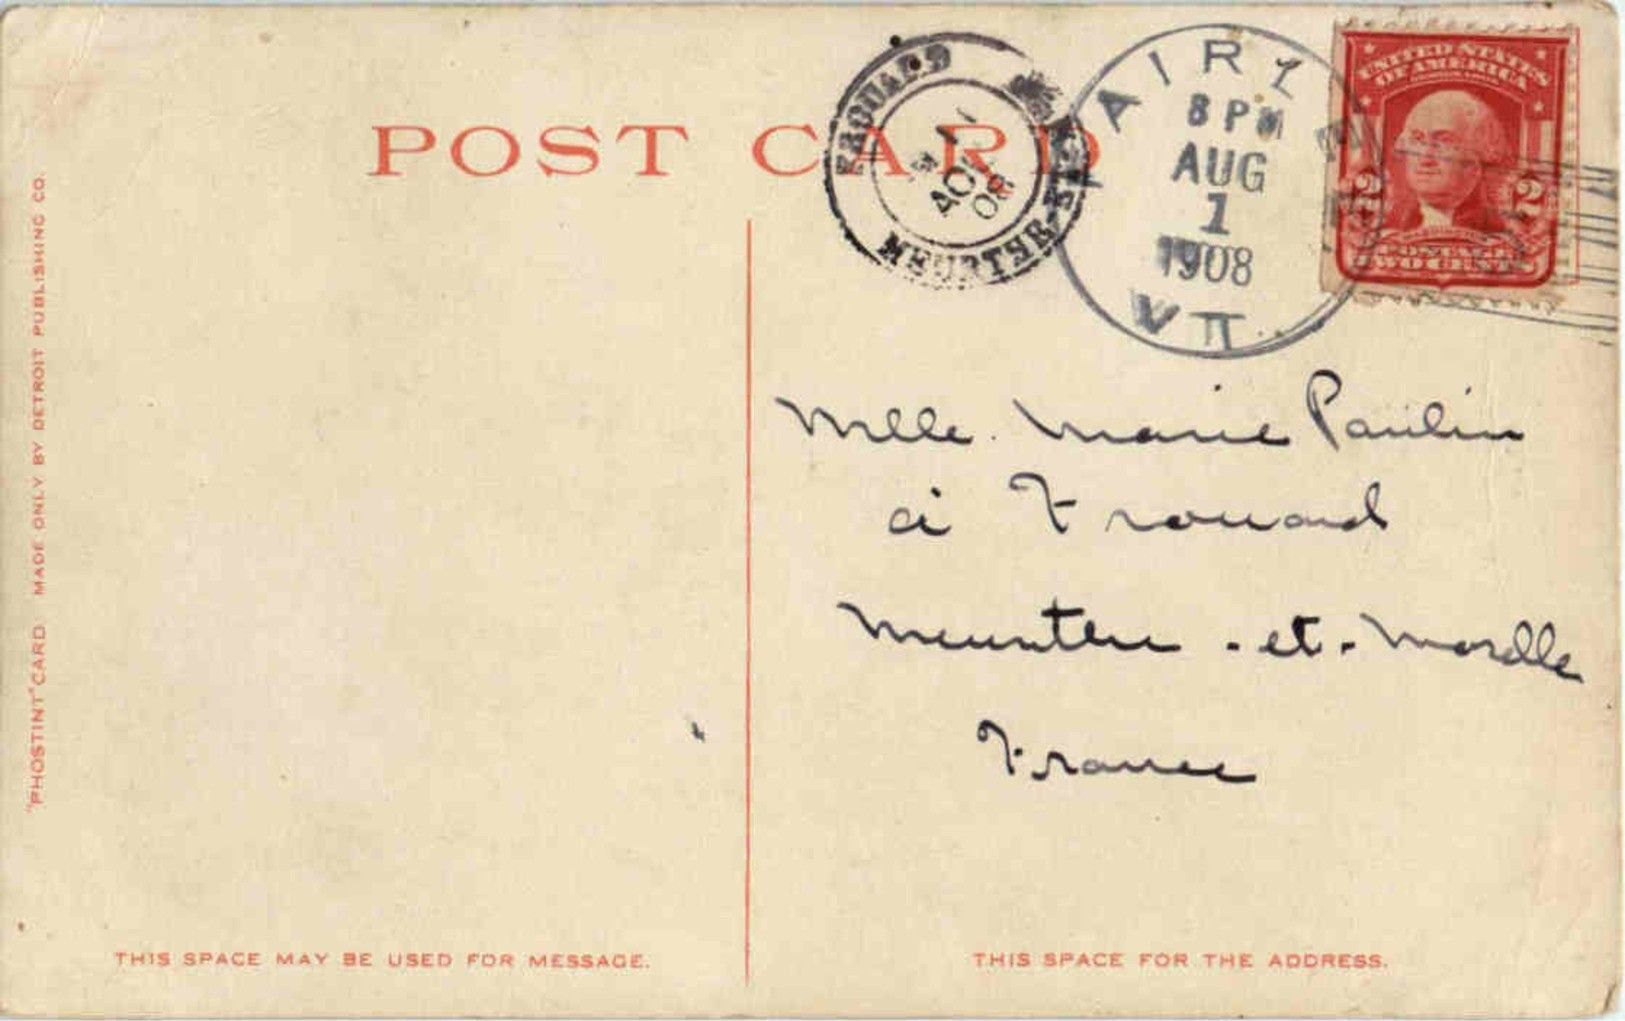 POST CARD
FROUARD
MEURTHE-ET-
AOU
08
FAIRLEE
8 PM
AUG
1
1908
VT
UNITED STATES
OF AMERICA
2 2
POSTAGE
TWO CENTS
Mlle. Marie Paulin
à Frouard
Meurthe-et-Moselle
France
"PHOSTINT" CARD MADE ONLY BY DETROIT PUBLISHING CO.
THIS SPACE MAY BE USED FOR MESSAGE.
THIS SPACE FOR THE ADDRESS.